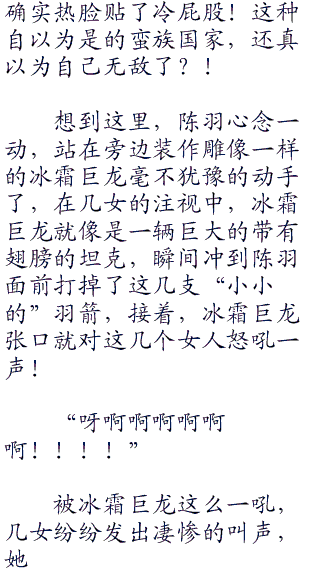 确实热脸贴了冷屁股！这种
自以为是的蛮族国家，还真
以为自己无敌了？！
想到这里，陈羽心念一
动，站在旁边装作雕像一样
的冰霜巨龙毫不犹豫的动手
了，在几女的注视中，冰霜
巨龙就像是一辆巨大的带有
翅膀的坦克，瞬间冲到陈羽
面前打掉了这几支“小小
的”羽箭，接着，冰霜巨龙
张口就对这几个女人怒吼一
声！
“呀啊啊啊啊啊
啊！！！！”
被冰霜巨龙这么一吼，
几女纷纷发出凄惨的叫声，
她